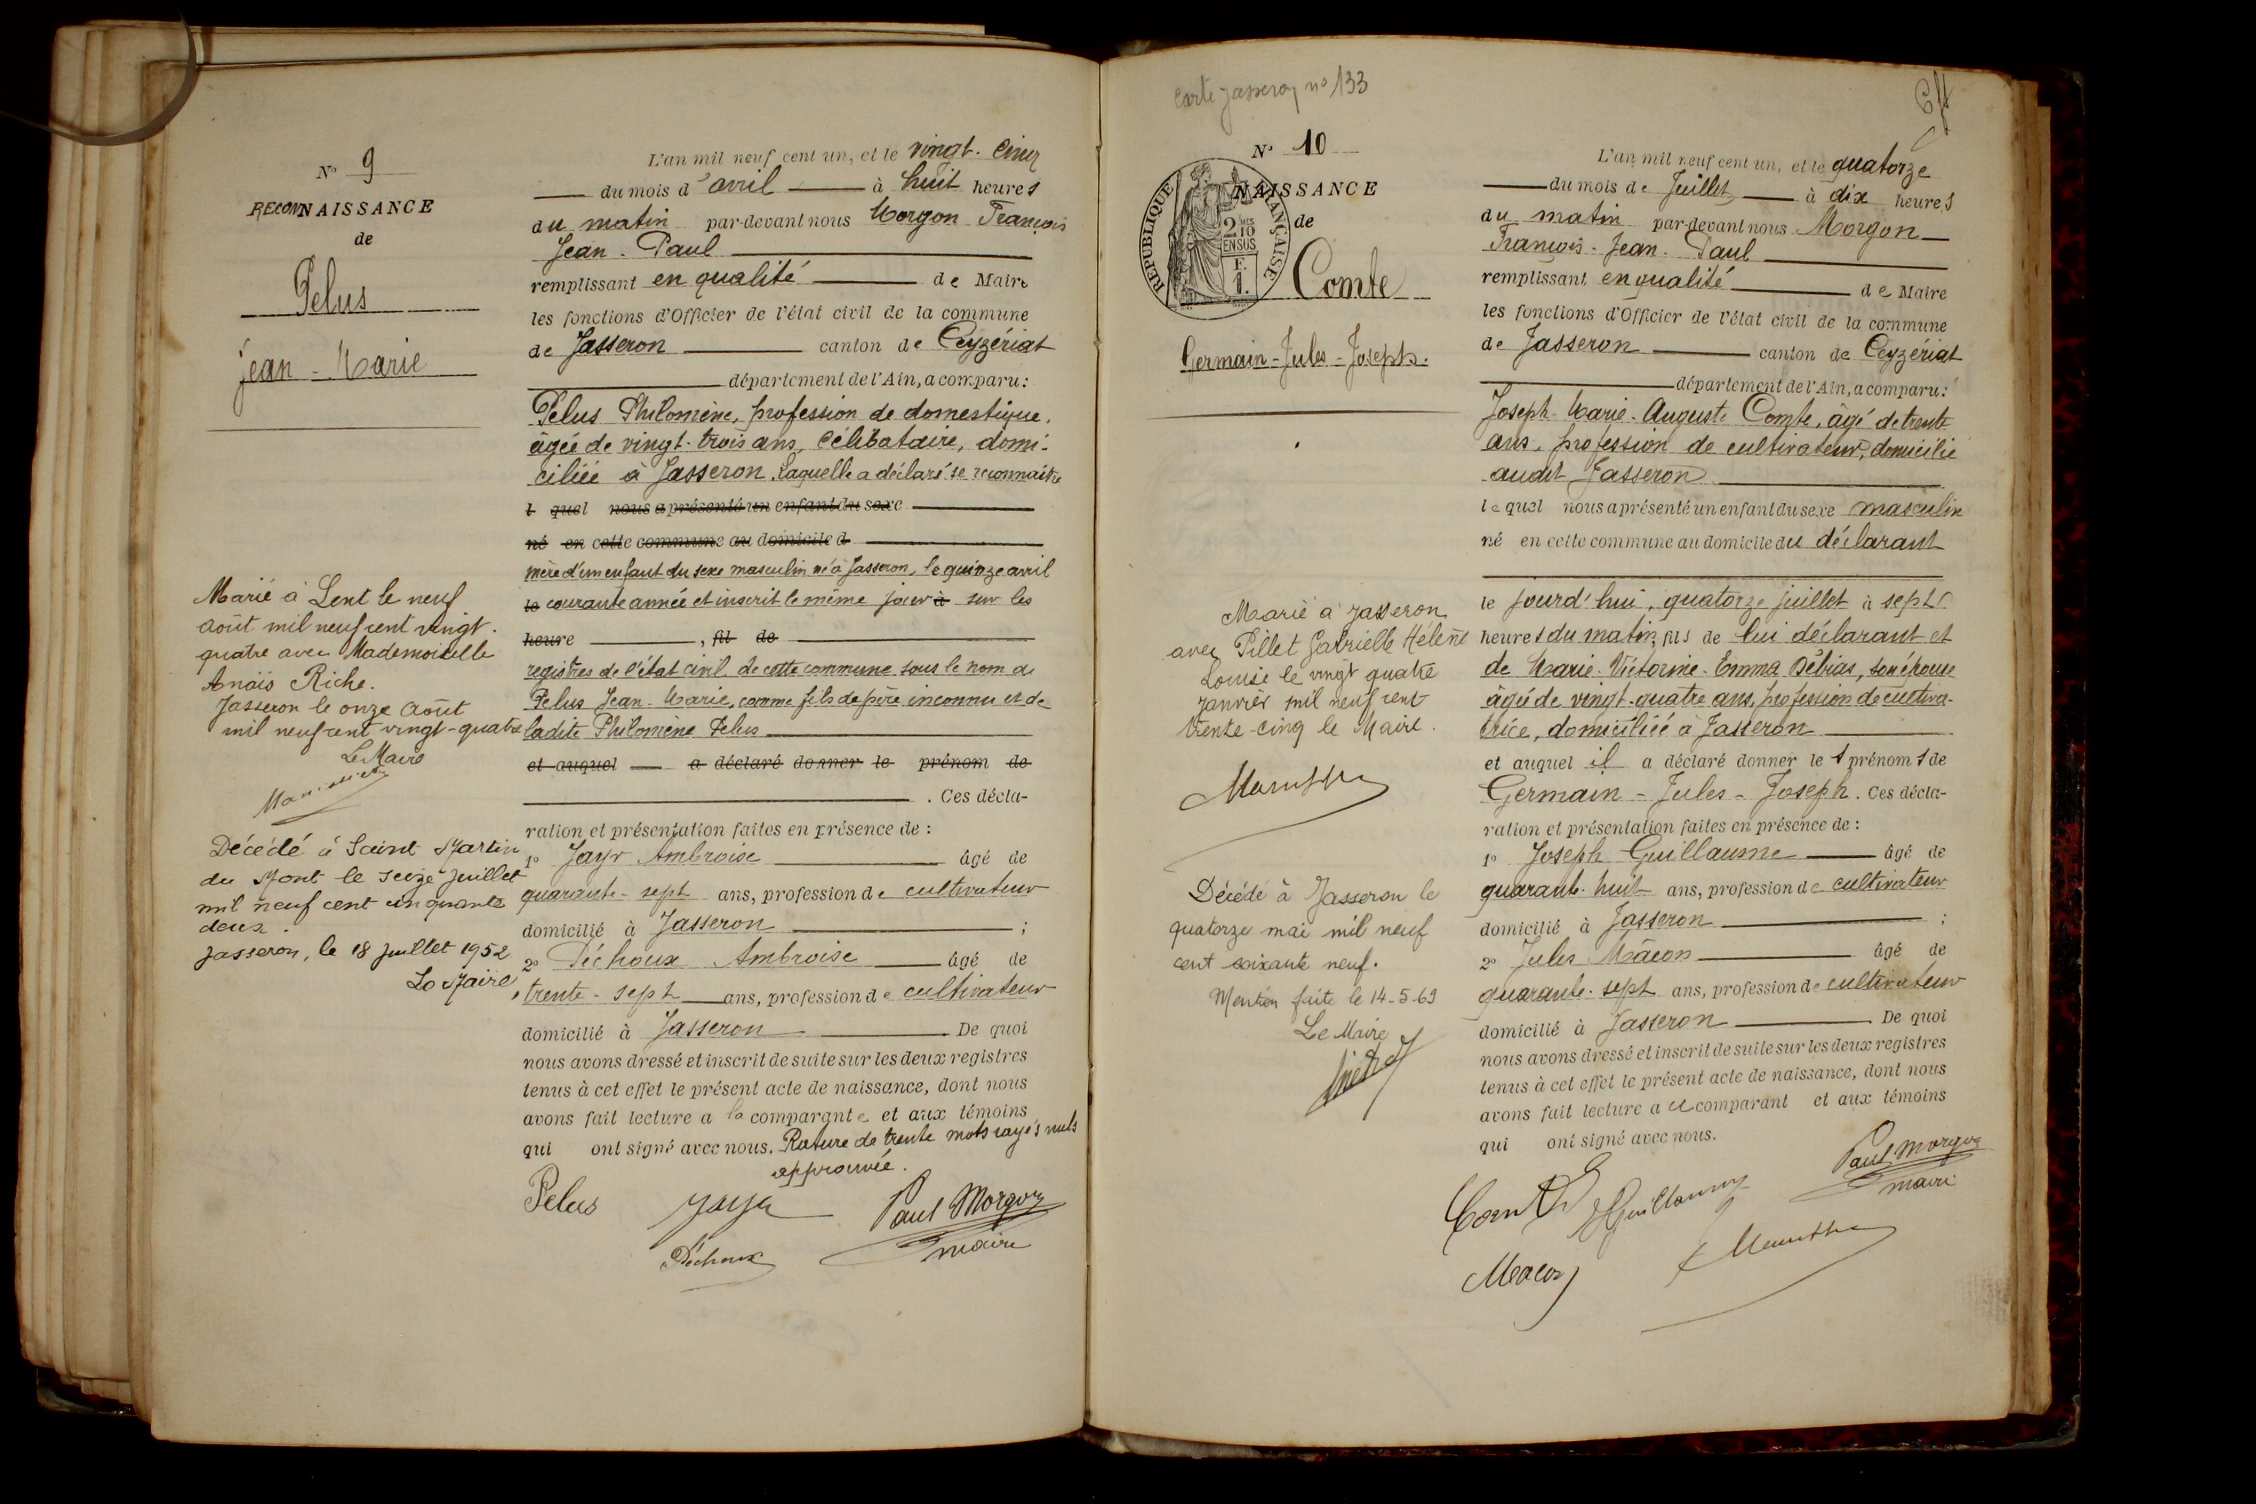 N° 9
RECONNAISSANCE
de
Pelus
Jean - Marie
Marié à Lent le neuf
août mil neuf cent vingt-
quatre avec Mademoiselle
Anaïs Riche.
Jasseron le onze août
mil neuf cent vingt-quatre
Le Maire
Décédé à Saint Martin
du Mont le seize juillet
mil neuf cent cinquante
deux.
Jasseron, le 18 juillet 1952
Le Maire,
L'an mil neuf cent un, et le vingt-cinq
du mois d'avril à huit heures
du matin par-devant nous Morgon François
Jean-Paul
remplissant en qualité de Maire
les fonctions d'Officier de l'état civil de la commune
de Jasseron canton de Ceyzériat
département de l'Ain, a comparu:
Pelus Philomène, profession de domestique,
âgée de vingt-trois ans, célibataire, domi-
ciliée à Jasseron. Laquelle a déclaré se reconnaître
l quel nous a présenté un enfant du sexe
né en cette commune au domicile d
mère d'un enfant du sexe masculin né à Jasseron, le quinze avril
le courante année et inscrit le même jour à sur les
heure , fil de
registres de l'état civil de cette commune sous le nom de
Pelus Jean-Marie, comme fils de père inconnu et de
ladite Philomène Pelus
et auquel a déclaré donner le prénom de
. Ces décla-
ration et présentation faites en présence de :
1° Jayr Ambroise âgé de
quarante-sept ans, profession de cultivateur
domicilié à Jasseron ;
2° Déchoux Ambroise âgé de
trente-sept ans, profession de cultivateur
domicilié à Jasseron De quoi
nous avons dressé et inscrit de suite sur les deux registres
tenus à cet effet le présent acte de naissance, dont nous
avons fait lecture a la comparante et aux témoins
qui ont signé avec nous. Rature de trente mots rayés nuls
approuvée.
Pelus Jayr Paul Morgon
Déchoux maire
Carte Jasseron n° 133
N° 10
NAISSANCE
de
RÉPUBLIQUE FRANÇAISE
2/10
EN SUS
F.
1.
Comte
Germain-Jules-Joseph.
Marié à Jasseron
avec Pillet Gabrielle Hélène
Louise le vingt quatre
janvier mil neuf cent
trente-cinq le Maire.
Décédé à Jasseron le
quatorze mai mil neuf
cent soixante neuf.
Mention faite le 14-5-69
Le Maire
L'an mil neuf cent un, et le quatorze
du mois de Juillet à dix heures
du matin par-devant nous Morgon
François-Jean-Paul
remplissant en qualité de Maire
les fonctions d'Officier de l'état civil de la commune
de Jasseron canton de Ceyzériat
département de l'Ain, a comparu:
Joseph-Marie-Auguste Comte, âgé de trente
ans, profession de cultivateur, domicilié
audit Jasseron
lequel nous a présenté un enfant du sexe masculin
né en cette commune au domicile du déclarant
le jourd'hui, quatorze juillet à sept
heures du matin, fils de lui déclarant et
de Marie-Victorine-Emma Débias, son épouse
âgée de vingt-quatre ans, profession de cultiva-
trice, domiciliée à Jasseron
et auquel il a déclaré donner les prénoms de
Germain-Jules-Joseph. Ces décla-
ration et présentation faites en présence de :
1° Joseph Guillaume âgé de
quarante-huit ans, profession de cultivateur
domicilié à Jasseron ;
2° Jules Mâcon âgé de
quarante-sept ans, profession de cultivateur
domicilié à Jasseron De quoi
nous avons dressé et inscrit de suite sur les deux registres
tenus à cet effet le présent acte de naissance, dont nous
avons fait lecture au comparant et aux témoins
qui ont signé avec nous.
Paul Morgon
Comte Guillaume maire
Macon